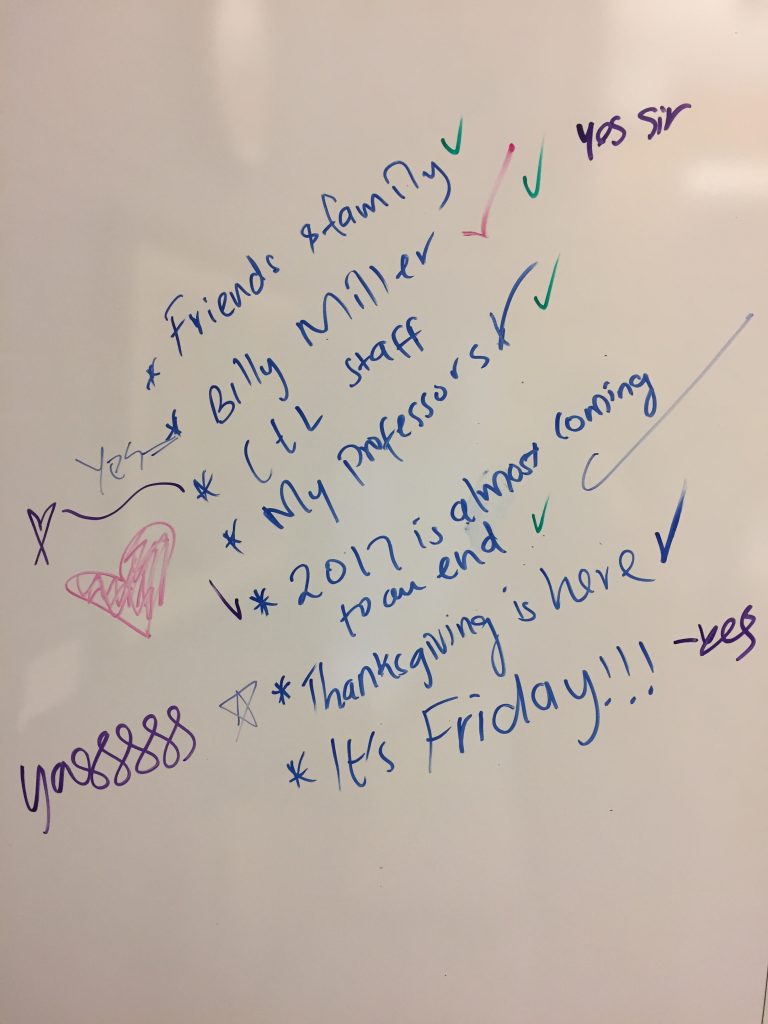 yes sir
* Friends & family ✓
* Billy Miller ✓ ✓
Yes
* CTL staff
* My professors ✓ ✓
* 2017 is almost coming
to an end ✓
* Thanksgiving is here ✓
- yes
* It's Friday!!!
yasssss